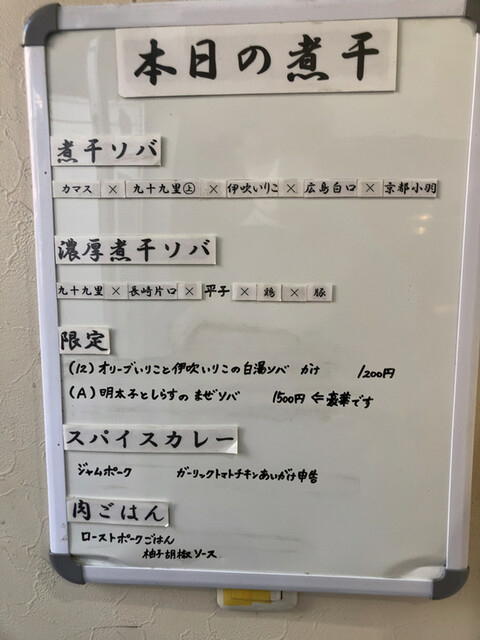 本日の煮干
煮干ソバ
カマス × 九十九里㊤ × 伊吹いりこ × 広島白口 × 京都小羽
濃厚煮干ソバ
九十九里 × 長崎片口 × 平子 × 鶏 × 豚
限定
(12) オリーブいりこと伊吹いりこの白湯ソバ かけ 1200円
(A) 明太子としらすの まぜソバ 1500円 ⇐豪華です
スパイスカレー
ジャムポーク ガーリックトマトチキンあいがけ申告
肉ごはん
ローストポークごはん
柚子胡椒ソース